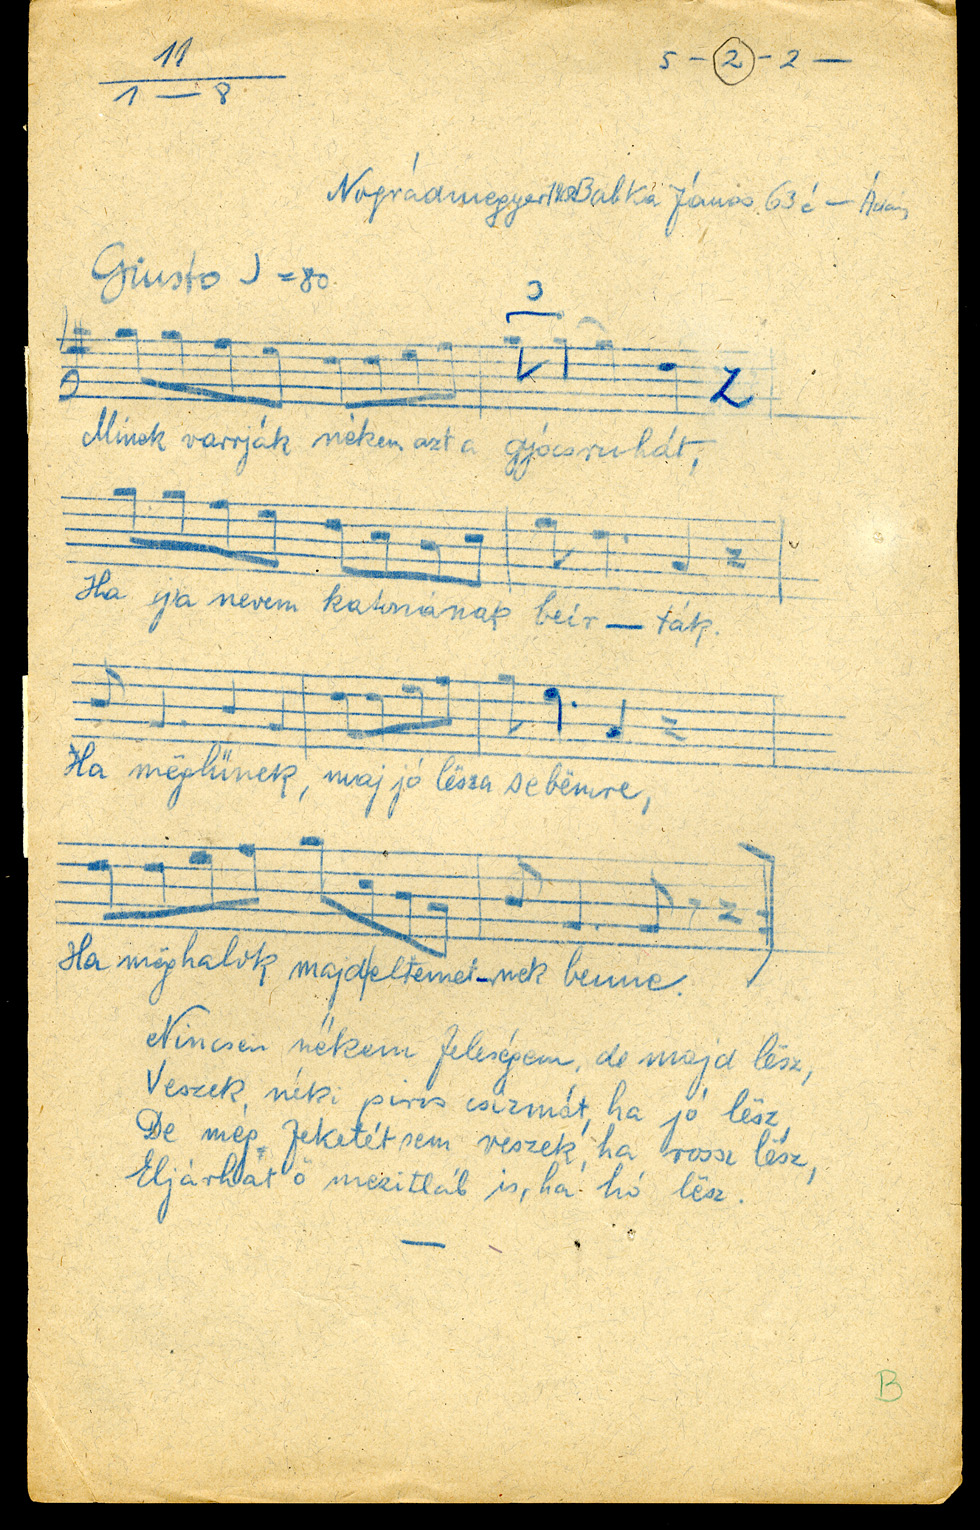 11
1 — 8
5 - 2 - 2 —
Nográdmegyer Babka János 63 é —
Giusto ♩ = 80
3
Minek varrják nékem azt a gyócsruhát,
Ha ja nevem katonának beír — ták.
Ha mëglűnek, maj jó lësza sebëmre,
Ha mëghalok majd eltemet-nek benne.
Nincsen nékem feleségem, de majd lësz,
Veszek néki piros csizmát, ha jó lësz,
De még feketét sem veszek, ha rossz lësz,
Eljárhat ő mezitláb is, ha hó lësz.
—
B